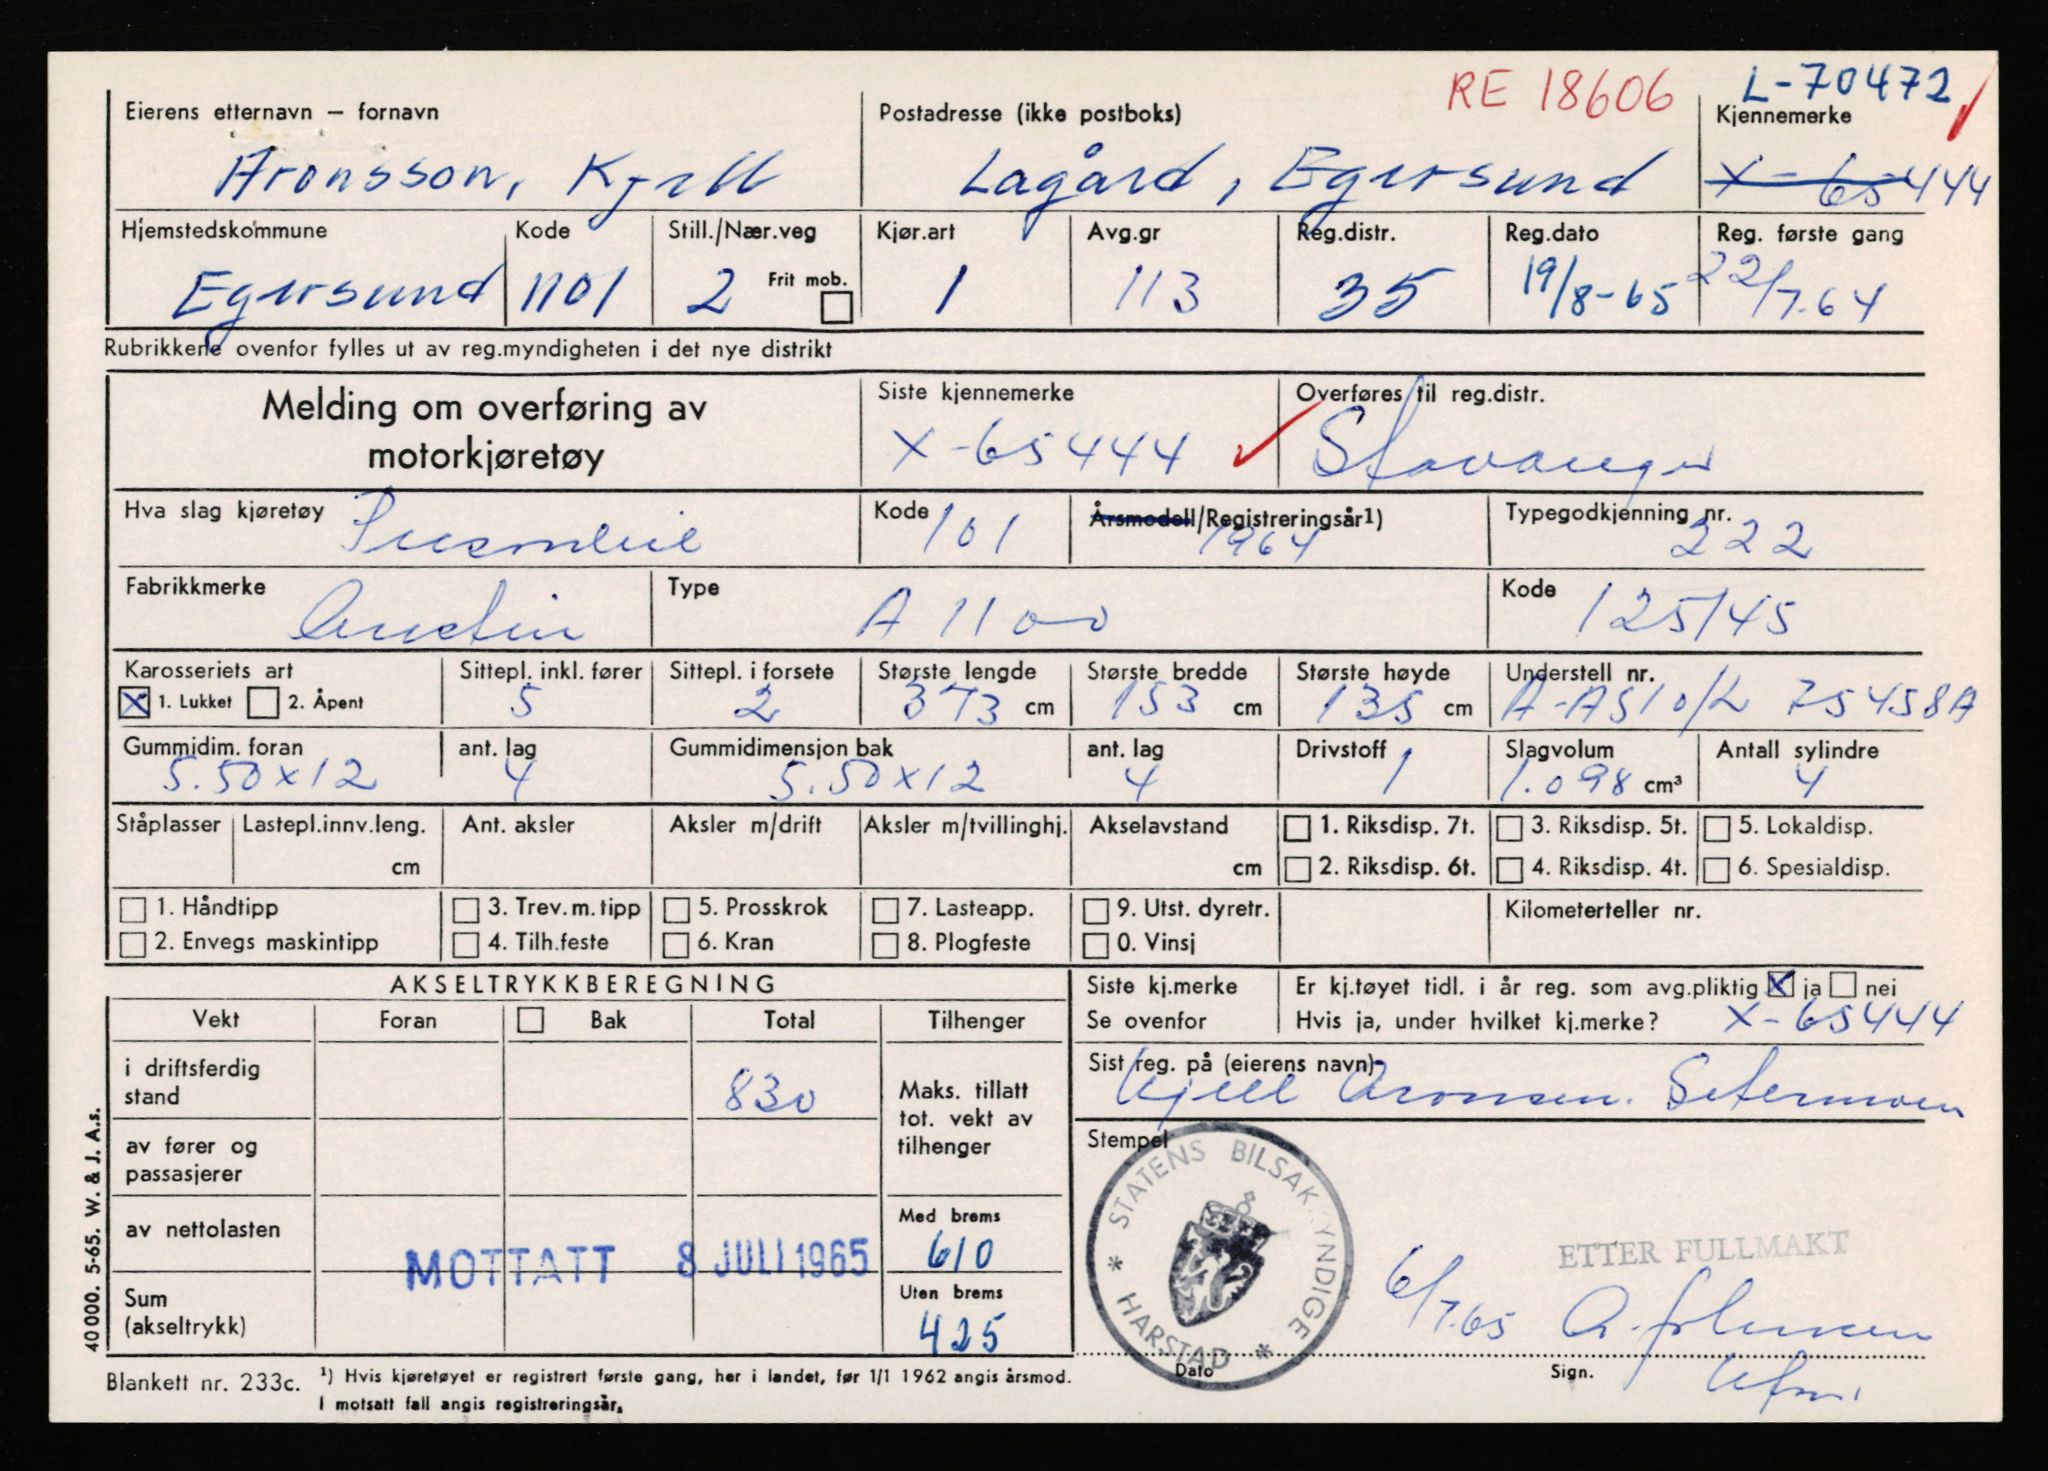 RE 18606 L-70472
Eierens etternavn — fornavn Postadresse (ikke postboks) Kjennemerke
Aronsson, Kjell Lagård, Egersund X-65444
Hjemstedskommune Kode Still./Nær.veg Kjør.art Avg.gr Reg.distr. Reg.dato Reg. første gang
Egersund 1101 2 Frit mob. 1 113 35 19/8-65 22/7.64
Rubrikkene ovenfor fylles ut av reg.myndigheten i det nye distrikt
Melding om overføring av Siste kjennemerke Overføres til reg.distr.
motorkjøretøy X-65444 Stavanger
Hva slag kjøretøy Kode Årsmodell/Registreringsår1) Typegodkjenning nr.
Personbil 101 1964 222
Fabrikkmerke Type Kode
Austin A 1100 125145
Karosseriets art Sittepl. inkl. fører Sittepl. i forsete Største lengde Største bredde Største høyde Understell nr.
1. Lukket 2. Åpent 5 2 373 cm 153 cm 135 cm A-AS10/L 75458A
Gummidim. foran ant. lag Gummidimensjon bak ant. lag Drivstoff Slagvolum Antall sylindre
5.50x12 4 5.50x12 4 1 1.098 cm³ 4
Ståplasser Lastepl.innv.leng. Ant. aksler Aksler m/drift Aksler m/tvillinghj. Akselavstand 1. Riksdisp. 7t. 3. Riksdisp. 5t. 5. Lokaldisp.
cm cm 2. Riksdisp. 6t. 4. Riksdisp. 4t. 6. Spesialdisp.
1. Håndtipp 3. Trev.m.tipp 5. Prosskrok 7. Lasteapp. 9. Utst. dyretr. Kilometerteller nr.
2. Envegs maskintipp 4. Tilh.feste 6. Kran 8. Plogfeste 0. Vinsj
AKSELTRYKKBEREGNING Siste kj.merke Er kj.tøyet tidl. i år reg. som avg.pliktig ja nei
Vekt Foran Bak Total Tilhenger Se ovenfor Hvis ja, under hvilket kj.merke? X-65444
i driftsferdig stand 830 Maks. tillatt tot. vekt av tilhenger
Sist reg. på (eierens navn)
Kjell Aronsen. Setermoen
av fører og passasjerer
Stempel
STATENS BILSAKKYNDIGE * HARSTAD *
av nettolasten Med brems
610
MOTTATT 8 JULI 1965
ETTER FULLMAKT
Sum (akseltrykk) Uten brems
425
6/7.65
Dato Sign.
40 000. 5-65. W. & J. A.s.
Blankett nr. 233c. 1) Hvis kjøretøyet er registrert første gang, her i landet, før 1/1 1962 angis årsmod.
I motsatt fall angis registreringsår.